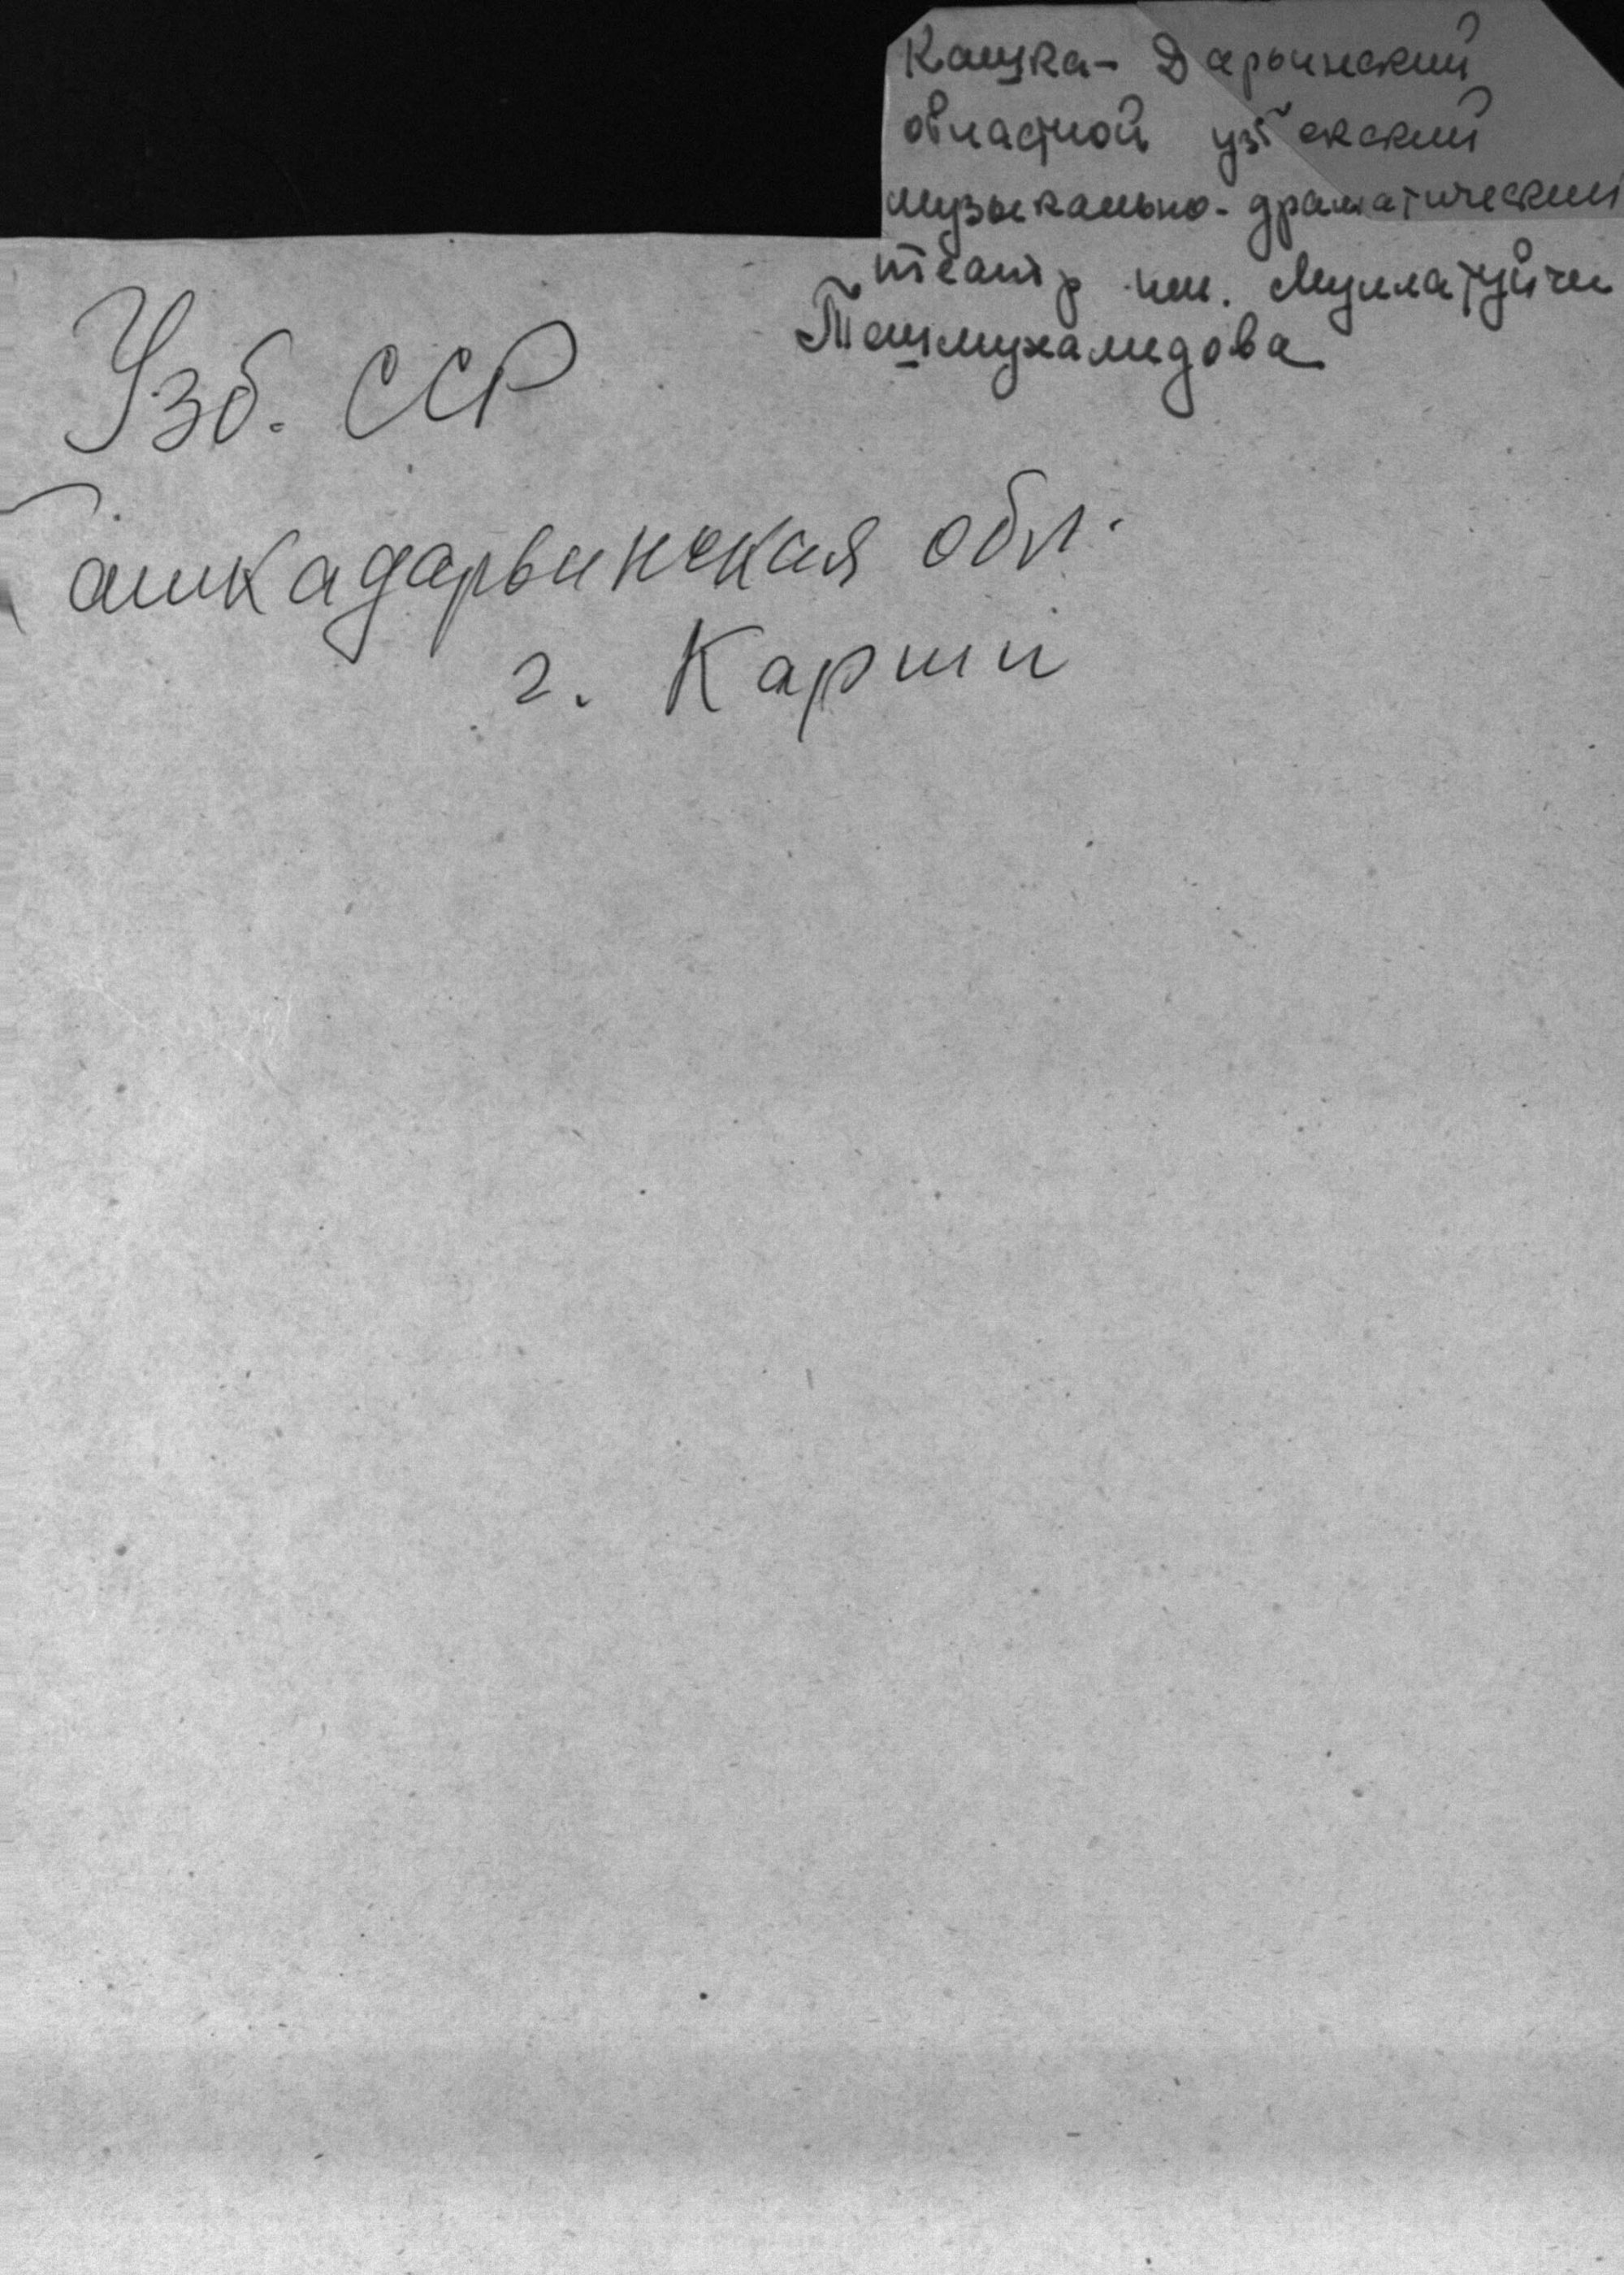 Кашка-Дарьинский
областной узбекский
музыкально-драматический
театр им. Муллатуйчи
Ташмухамедова
Узб. ССР
Кашкадарьинская обл.
г. Карши